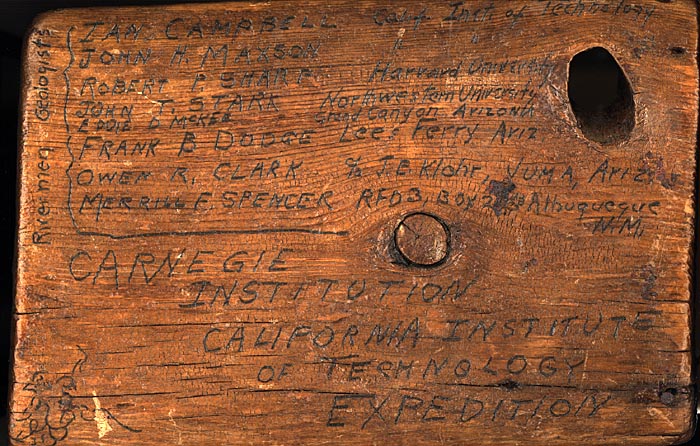 IAN CAMPBELL Calif Inst of Technology
JOHN H. MAXSON " "
ROBERT P SHARP Harvard University
JOHN T. STARK Northwestern University
EDDIE D McKEE Grand Canyon Arizona
FRANK B DODGE Lee's Ferry Ariz
OWEN R. CLARK % J.E. Klohr, YUMA, Ariz
MERRILL F. SPENCER RFD 3, BOX 2 Albuquerque
N.M.
Geologists
Rivermen
CARNEGIE
INSTITUTION
CALIFORNIA INSTITUTE
OF TECHNOLOGY
EXPEDITION